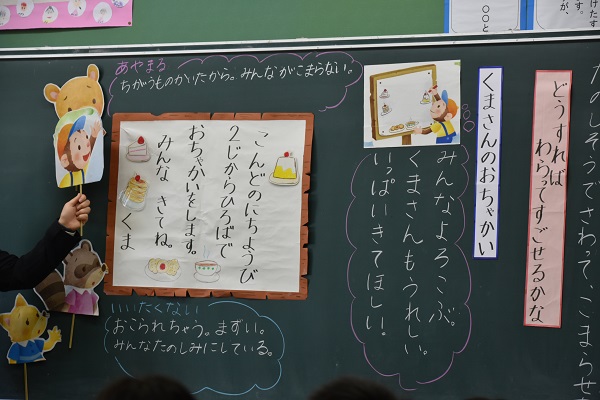 ○○と
たのしそうでさわって、こまらせ
どうすれば
わらってすごせるかな
くまさんのおちゃかい
みんなよろこぶ。
くまさんもうれしい。
いっぱいきてほしい。
あやまる
ちがうものかいたから。みんながこまらない。
こんどのにちようび
2じからひろばで
おちゃかいをします。
みんな きてね。
くま
いいたくない
おこられちゃう。まずい。
みんなたのしみにしている。